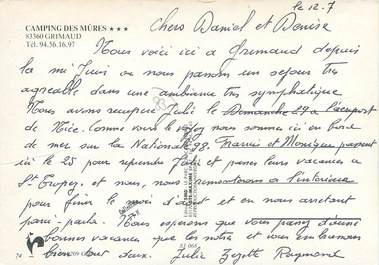 le 12.7
CAMPING DES MÛRES ★★★
83360 GRIMAUD
Tél. 94.56.16.97
Chers Daniel et Denise
Nous voici ici a Grimaud depuis
la mi Juin ou nous passons un sejour très
agreable dans une ambiance très symphatique
Nous avons recuperé Julie le Dimanche 27 a l'aeroport
de Nice. Comme vous le voyez nous sommes ici en bord
de mer sur la Nationale 98. Francis et Monique passent
ici le 25 pour reprendre Julie et passer leurs vacances a
St Tropez et nous, nous remonterons a l'interieur
pour finir le mois d'aout et en nous arretant
parci-parla. Nous esperons que vous passez d'aussi
bonnes vacances que les notres et vous embrassons
bien tous deux. Julie Zezette Raymond